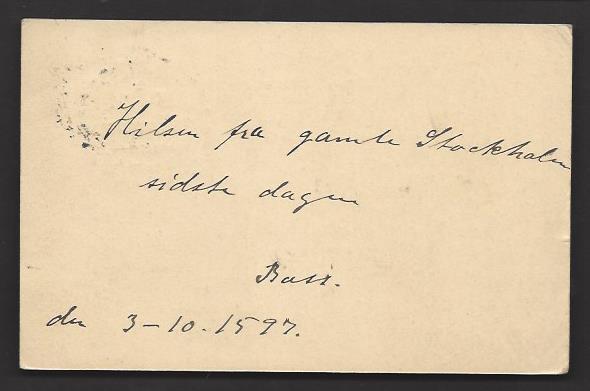 Hilsen fra gamle Stockholm
sidste dagen
den 3-10.1597.